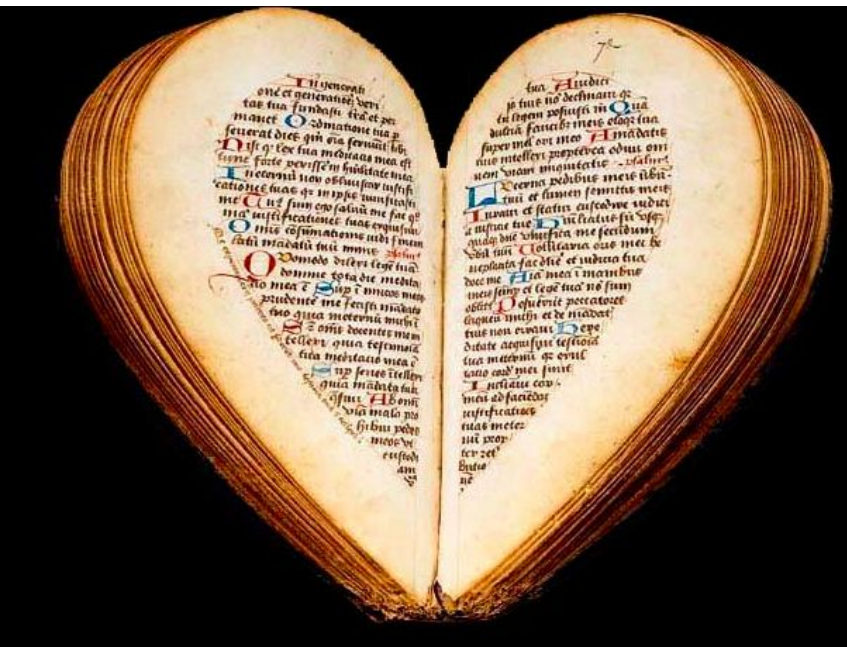 In generati
one et generatione veri
tas tua fundasti trā et per
manet Ordinatione tua p
severat dies qm oīa serviunt tibi
Nisi q lex tua meditacio mea est
tunc forte perissem in hūilitate mea
In eternū non obliviscar iustifi
cationes tuas qr in ipsis vivificasti
me Tuus sum ego salvū me fac qm
iustificationes tuas exquisivi
Omnis cōsumationis vidi finem
latū mādatū tuū nimis psalmus
Quomodo dilexi legē tuā
domine tota die medita
tio mea ē Sup ī micos meos
prudentē me fecisti mādato
tuo quia in eternū michi ē
S omēs docentes me in
tellexi quia testimonia
tua meditacio mea ē
Sup senes ītellexi
quia mādata tua
q̄sivi Ab omni
via mala pro
hibui pedes
meos vt
custodi
am
tua A iudici
is tuis nō declinavi qr
tu legem posuisti m̄ Quā
dulcia faucibus meis eloqr tua
super mel ori meo A mādatis
tuis intellexi propterea odivi om
nem viam iniquitatis psalmus
Lucerna pedibus meis vbū
tuū et lumen semitis meis
Iuravi et statui custodire iudici
a iusticie tue Humiliatus sū vsq
quaq dn̄e vivifica me secundum
vbū tuū Voluntaria oris mei be
neplacita fac dn̄e et iudicia tua
doce me Aīa mea ī manibus
meis semp et legē tuā nō sum
oblitus Posuerūt peccatores
laqueū michi et de mādatis
tuis non erravi Here
ditate acquisivi testimonia
tua in eternū qr exul
tatio cordis mei sunt
Inclinavi cor
meū ad faciēdas
iustificationes
tuas in eter
nū prop
ter ret
butio
nē